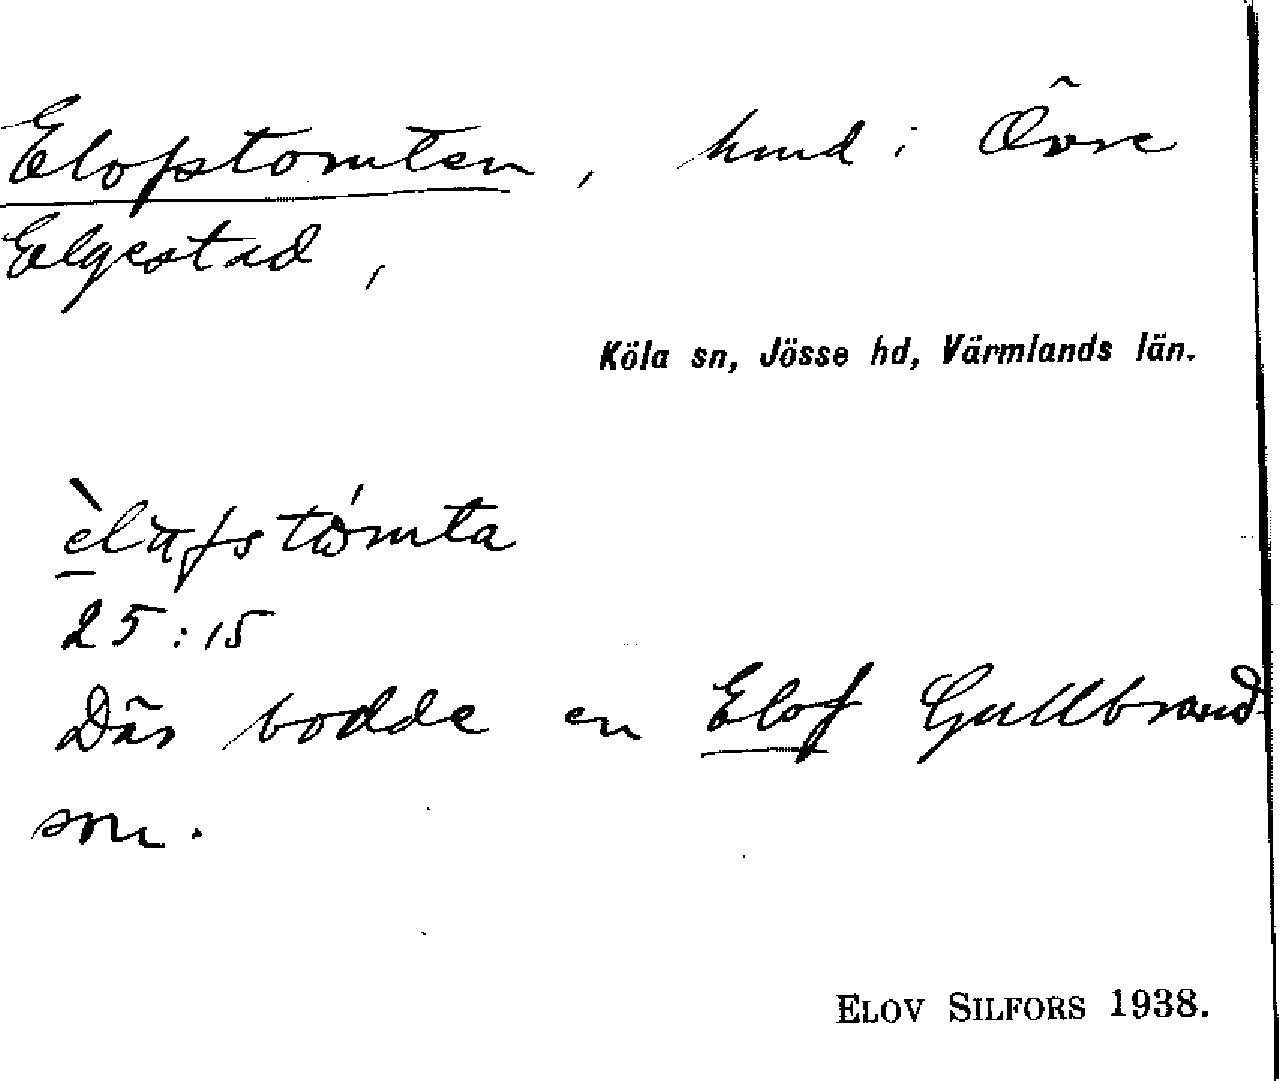 Elofstomten, hmd i Övre
Elgestad,
Köla sn, Jösse hd, Värmlands län.
25:15
Där bodde en Elof Gullbrand-
son.
ELOV SILFORS 1938.